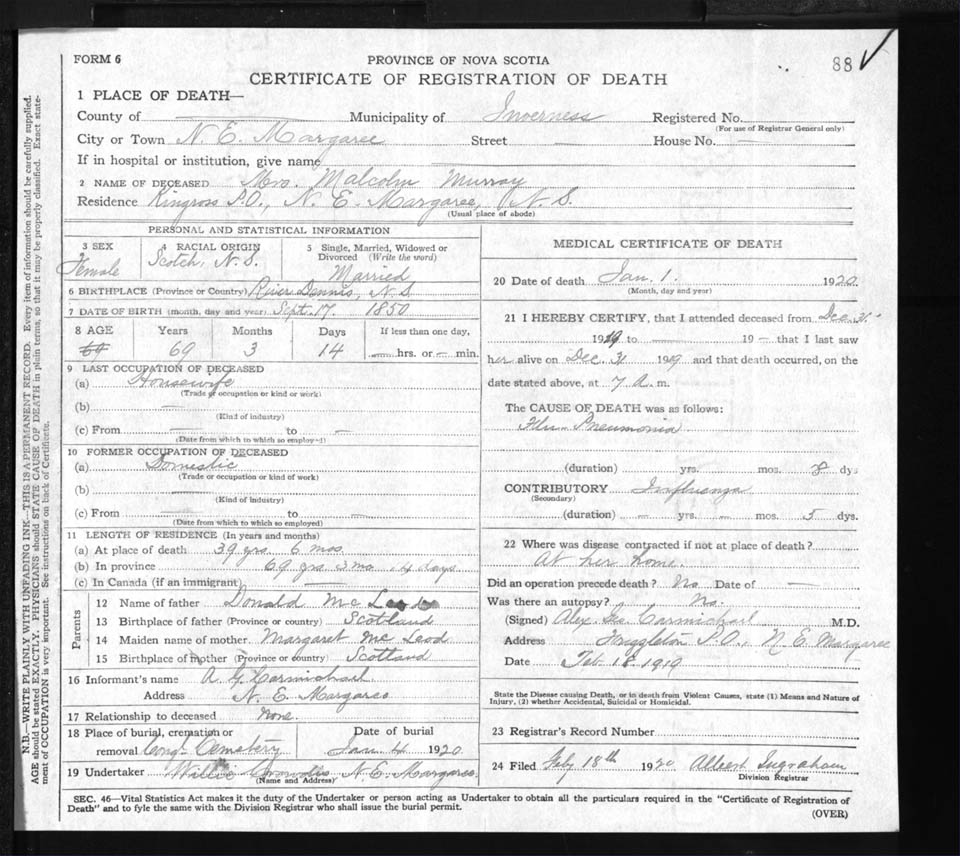 FORM 6
PROVINCE OF NOVA SCOTIA
88
CERTIFICATE OF REGISTRATION OF DEATH
1 PLACE OF DEATH—
County of Municipality of Inverness Registered No.
(For use of Registrar General only)
City or Town N. E. Margaree Street — House No. —
If in hospital or institution, give name
2 NAME OF DECEASED Mrs. Malcolm Murray
Residence Kingross P.O., N. E. Margaree, N. S.
(Usual place of abode)
PERSONAL AND STATISTICAL INFORMATION
3 SEX
Female
4 RACIAL ORIGIN
Scotch, N. S.
5 Single, Married, Widowed or
Divorced (Write the word)
Married
6 BIRTHPLACE (Province or Country) River Dennis, N. S.
7 DATE OF BIRTH (month, day and year) Sept. 17. 1850
8 AGE Years Months Days If less than one day,
69 69 3 14 — hrs. or — min.
9 LAST OCCUPATION OF DECEASED
(a) Housewife
(Trade or occupation or kind or work)
(b) —
(Kind of industry)
(c) From — to —
(Date from which to which so employed)
10 FORMER OCCUPATION OF DECEASED
(a) Domestic
(Trade or occupation or kind of work)
(b) —
(Kind of industry)
(c) From — to —
(Date from which to which so employed)
11 LENGTH OF RESIDENCE (In years and months)
(a) At place of death 39 yrs 6 mos.
(b) In province 69 yrs 3 mo. 14 days
(c) In Canada (if an immigrant) —
Parents
12 Name of father Donald Mc Leod
13 Birthplace of father (Province or country) Scotland
14 Maiden name of mother Margaret Mc Leod
15 Birthplace of mother (Province or country) Scotland
16 Informant's name A. G. Carmichael
Address N. E. Margaree
17 Relationship to deceased None.
18 Place of burial, cremation or Date of burial
removal Cong. Cemetery Jan. 4 1920
19 Undertaker Willie N. E. Margaree
(Name and Address)
MEDICAL CERTIFICATE OF DEATH
20 Date of death Jan. 1. 1920
(Month, day and year)
21 I HEREBY CERTIFY, that I attended deceased from Dec. 31
1919 to — 19 — that I last saw
her alive on Dec. 31 1919 and that death occurred, on the
date stated above, at 7 A. m.
The CAUSE OF DEATH was as follows:
Flu- Pneumonia
(duration) yrs. mos. 8 dys
CONTRIBUTORY Influenza
(Secondary)
(duration) — yrs. — mos. 5 dys.
22 Where was disease contracted if not at place of death?
At her home.
Did an operation precede death? No Date of —
Was there an autopsy? No.
(Signed) Alex. Carmichael M.D.
Address P.O., N. E. Margaree
Date Feb. 18. 1919
State the Disease causing Death, or in death from Violent Causes, state (1) Means and Nature of
Injury, (2) whether Accidental, Suicidal or Homicidal.
23 Registrar's Record Number
24 Filed Feby 18th 1920 Albert Ingraham
Division Registrar
SEC. 46—Vital Statistics Act makes it the duty of the Undertaker or person acting as Undertaker to obtain all the particulars required in the "Certificate of Registration of
Death" and to fyle the same with the Division Registrar who shall issue the burial permit.
(OVER)
N.B.—WRITE PLAINLY WITH UNFADING INK—THIS IS A PERMANENT RECORD. Every item of information should be carefully supplied.
AGE should be stated EXACTLY. PHYSICIANS should STATE CAUSE OF DEATH in plain terms, so that it may be properly classified. Exact state-
ment of OCCUPATION is very important. See instructions on back of Certificate.